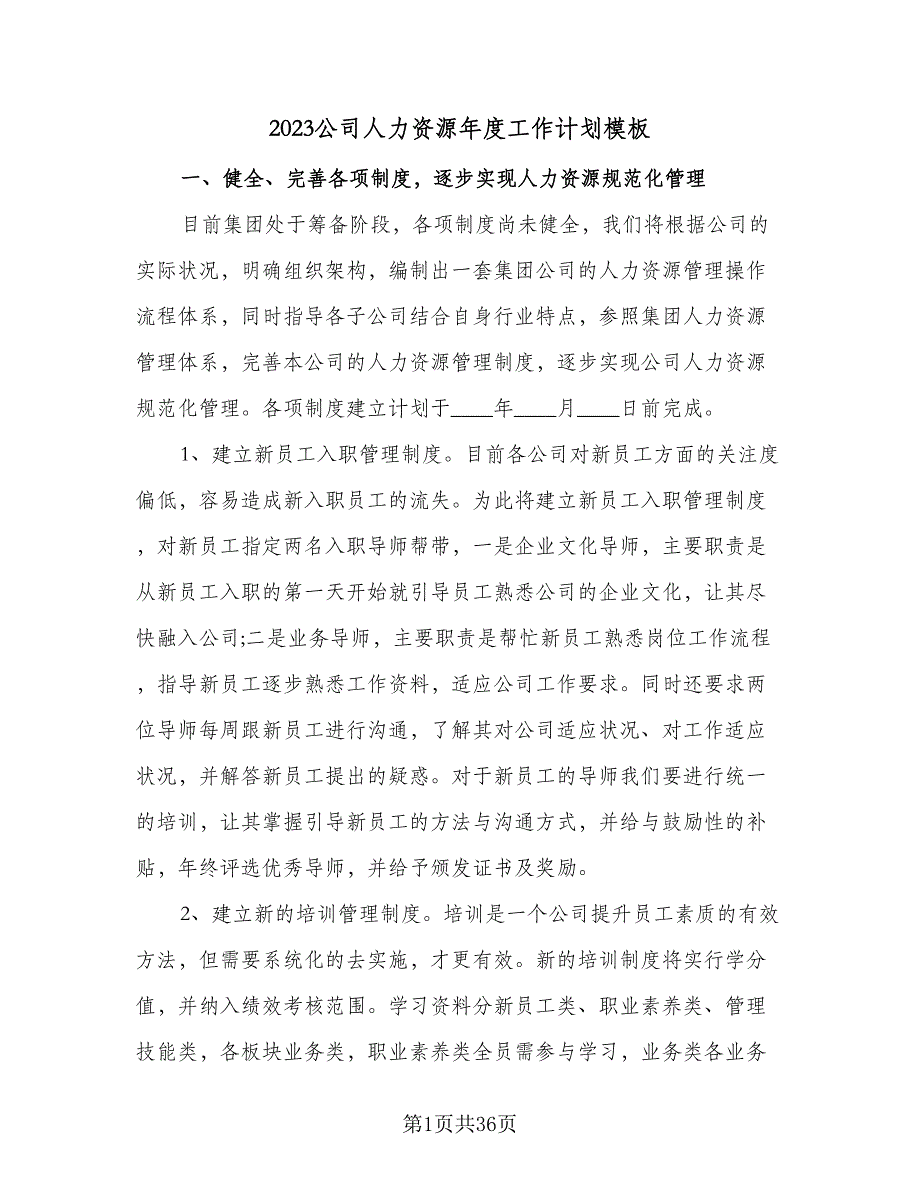 2023公司人力资源年度工作计划模板
一、健全、完善各项制度，逐步实现人力资源规范化管理
目前集团处于筹备阶段，各项制度尚未健全，我们将根据公司的
实际状况，明确组织架构，编制出一套集团公司的人力资源管理操作
流程体系，同时指导各子公司结合自身行业特点，参照集团人力资源
管理体系，完善本公司的人力资源管理制度，逐步实现公司人力资源
规范化管理。各项制度建立计划于____年____月____日前完成。
1、建立新员工入职管理制度。目前各公司对新员工方面的关注度
偏低，容易造成新入职员工的流失。为此将建立新员工入职管理制度
，对新员工指定两名入职导师帮带，一是企业文化导师，主要职责是
从新员工入职的第一天开始就引导员工熟悉公司的企业文化，让其尽
快融入公司;二是业务导师，主要职责是帮忙新员工熟悉岗位工作流程
，指导新员工逐步熟悉工作资料，适应公司工作要求。同时还要求两
位导师每周跟新员工进行沟通，了解其对公司适应状况、对工作适应
状况，并解答新员工提出的疑惑。对于新员工的导师我们要进行统一
的培训，让其掌握引导新员工的方法与沟通方式，并给与鼓励性的补
贴，年终评选优秀导师，并给予颁发证书及奖励。
2、建立新的培训管理制度。培训是一个公司提升员工素质的有效
方法，但需要系统化的去实施，才更有效。新的培训制度将实行学分
值，并纳入绩效考核范围。学习资料分新员工类、职业素养类、管理
技能类，各板块业务类，职业素养类全员需参与学习，业务类各业务
第1页共36页